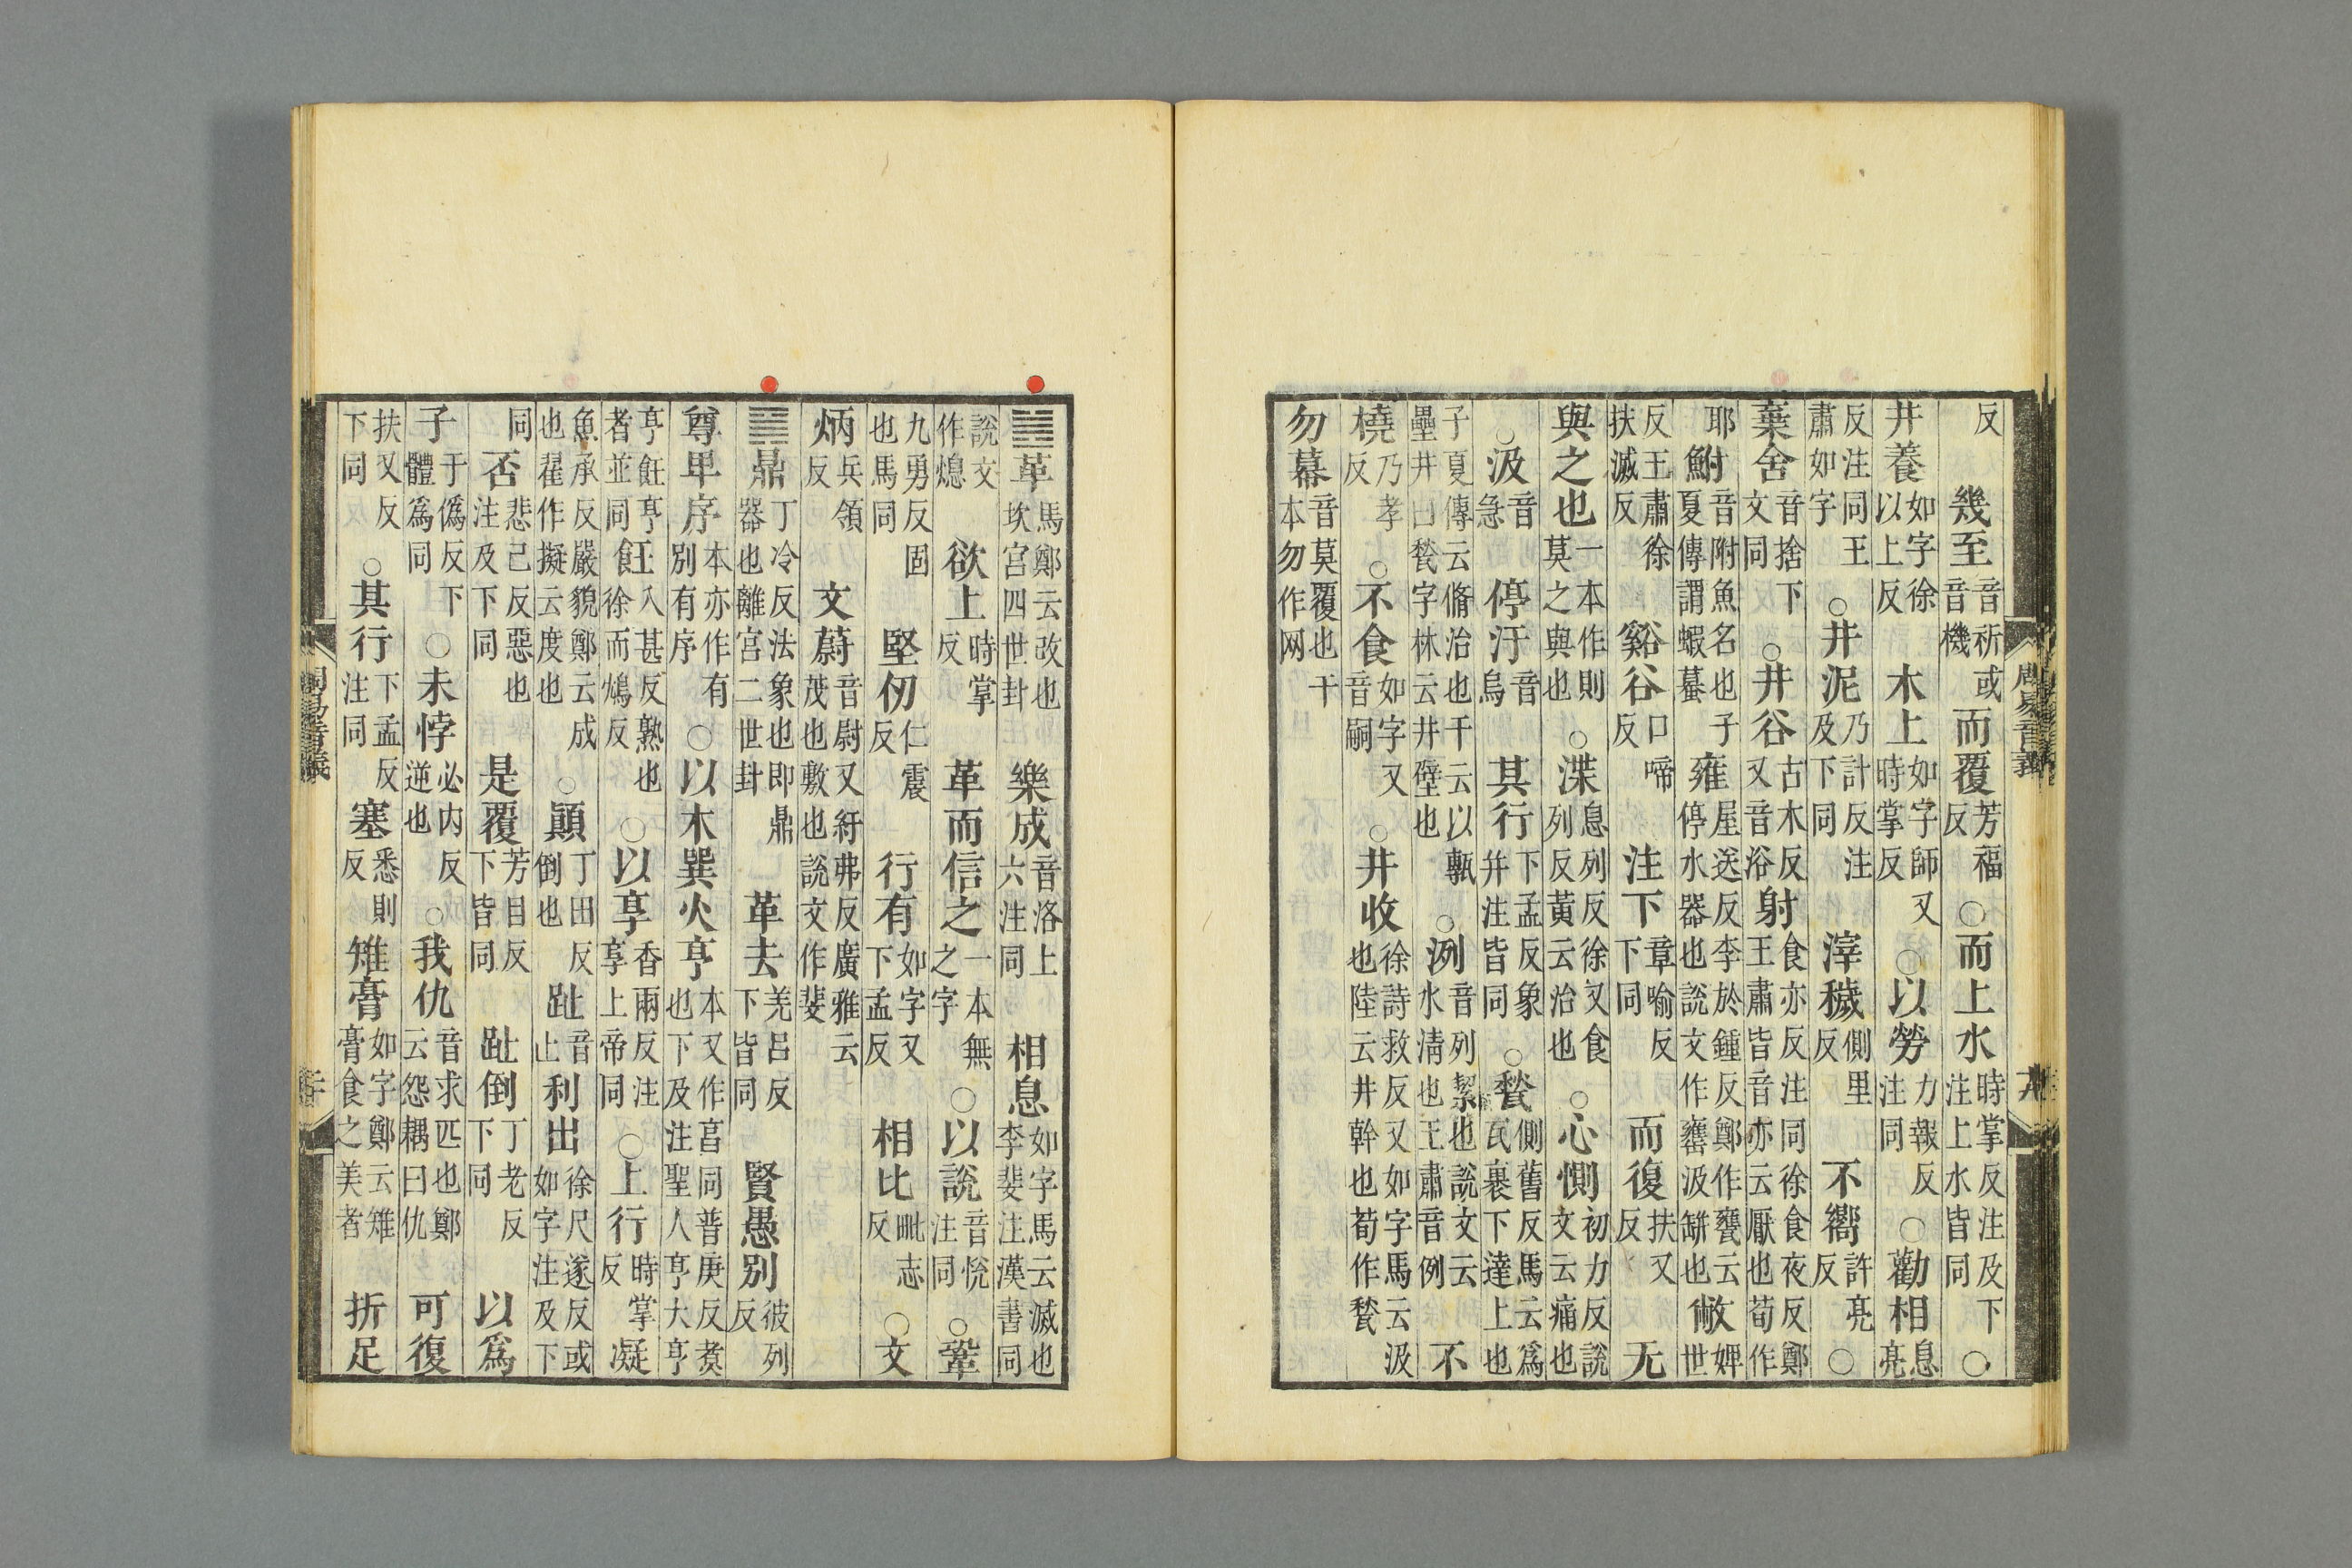 反　幾至音祈或音機而覆芳福反○而上水時掌反注及下注上水皆同○
井養如字徐以上反木上如字師又時掌反○以勞力報反注同○勸相息亮
反注同王肅如字○井泥乃計反注及下同滓穢側里反不嚮許亮反○
棄舍音捨下文同○井谷古木反又音浴射食亦反注同徐食夜反鄭王肅皆音亦云厭也荀作
耶鮒音附魚名也子夏傳謂蝦蟇雍屋送反李於鍾反鄭作甕云停水器也說文作罋汲缾也敝婢世
反王肅徐扶滅反谿谷口啼反注下章喻反下同而復扶又反无
與之也一本作則莫之與也○渫息列反徐又食列反黃云治也○心惻初力反說文云痛也
○汲音急停汙音烏其行下孟反象并注皆同○甃側舊反馬云爲瓦裹下達上也
子夏傳云脩治也干云以甎壘井曰甃字林云井壁也○洌音列絜也說文云水清也王肅音例不
橈乃孝反○不食如字又音嗣○井收徐詩救反又如字馬云汲也陸云井幹也荀作甃
勿幕音莫覆也干本勿作网
周易音義
䷰革馬鄭云改也坎宮四世卦樂成音洛上六注同相息如字馬云滅也李斐注漢書同
說文作熄欲上時掌反革而信之一本無之字○以說音悅注同○鞏
九勇反固也馬同堅仞仁震反行有如字又下孟反相比毗志反○文
炳兵領反文蔚音尉又紆弗反廣雅云茂也數也說文作斐
䷱鼎丁冷反法象也即鼎器也離宮二世卦革去羌呂反下皆同賢愚別彼列反
尊卑序本亦作有別有序○以木巽火亨本又作亯同普庚反煑也下及注聖人亨大亨
亨飪亨者並同飪入甚反熟也徐而鴆反○以享香兩反注享上帝同○上行時掌反凝
魚承反嚴貌鄭云成也翟作擬云度也○顚丁田反倒也趾音止利出徐尺遂反或如字注及下
同否悲己反惡也注及下同是覆芳目反下皆同趾倒丁老反下同以爲
子于僞反下體爲同○未悖必內反逆也○我仇音求匹也鄭云怨耦曰仇可復
扶又反下同○其行下孟反注同塞悉則反雉膏如字鄭云雉膏食之美者折足